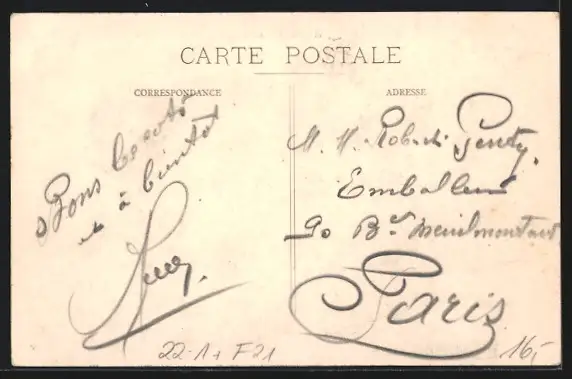 CARTE POSTALE
CORRESPONDANCE
ADRESSE
Bons
et à bientôt
M. Robert
Emballeur
90 Bd Menilmontant
Paris
22-1+ F21
16,-